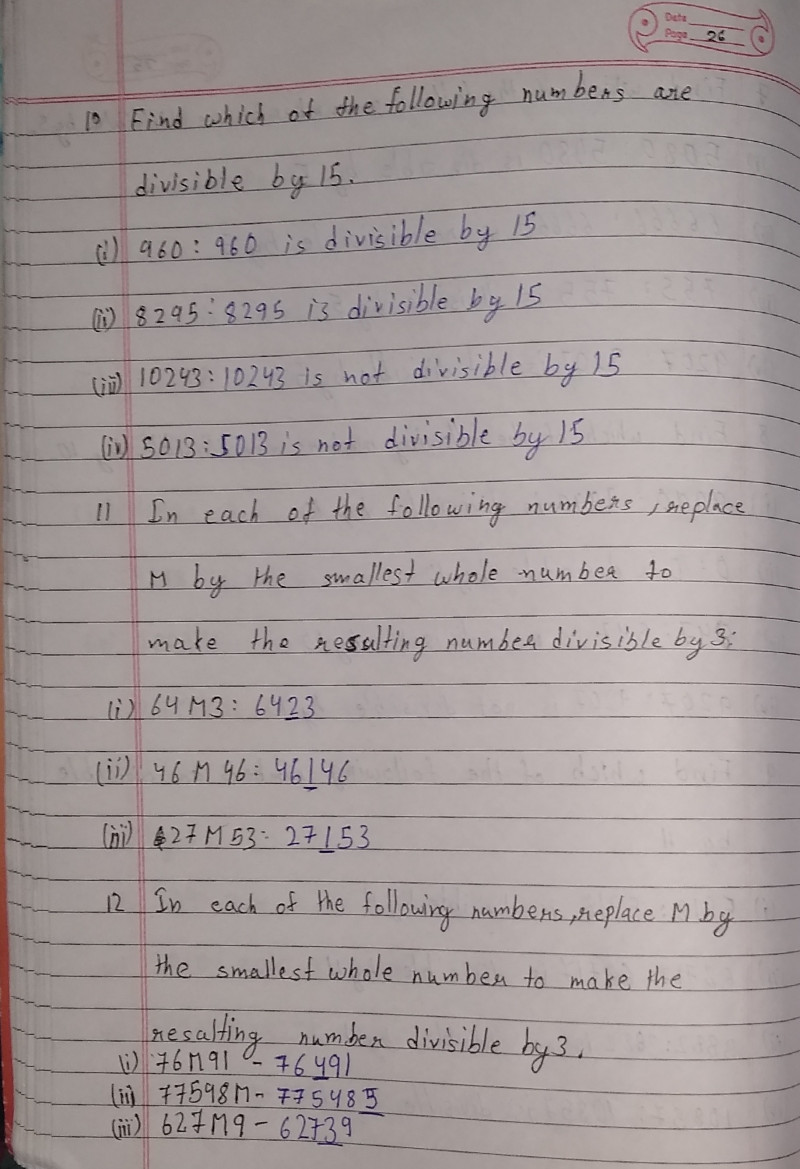 Date
Page 26
10 Find which of the following numbers are
divisible by 15.
(i) 960 : 960 is divisible by 15
(ii) 8295 : 8295 is divisible by 15
(iii) 10243 : 10243 is not divisible by 15
(iv) 5013 : 5013 is not divisible by 15
11 In each of the following numbers, replace
M by the smallest whole number to
make the resulting number divisible by 3:
(i) 64M3 : 6423
(ii) 46M46 : 46146
(iii) 27M53 : 27153
12 In each of the following numbers, replace M by
the smallest whole number to make the
resalting number divisible by 3.
(i) 76M91 - 76491
(ii) 77548M - 775485
(iii) 627M9 - 62739